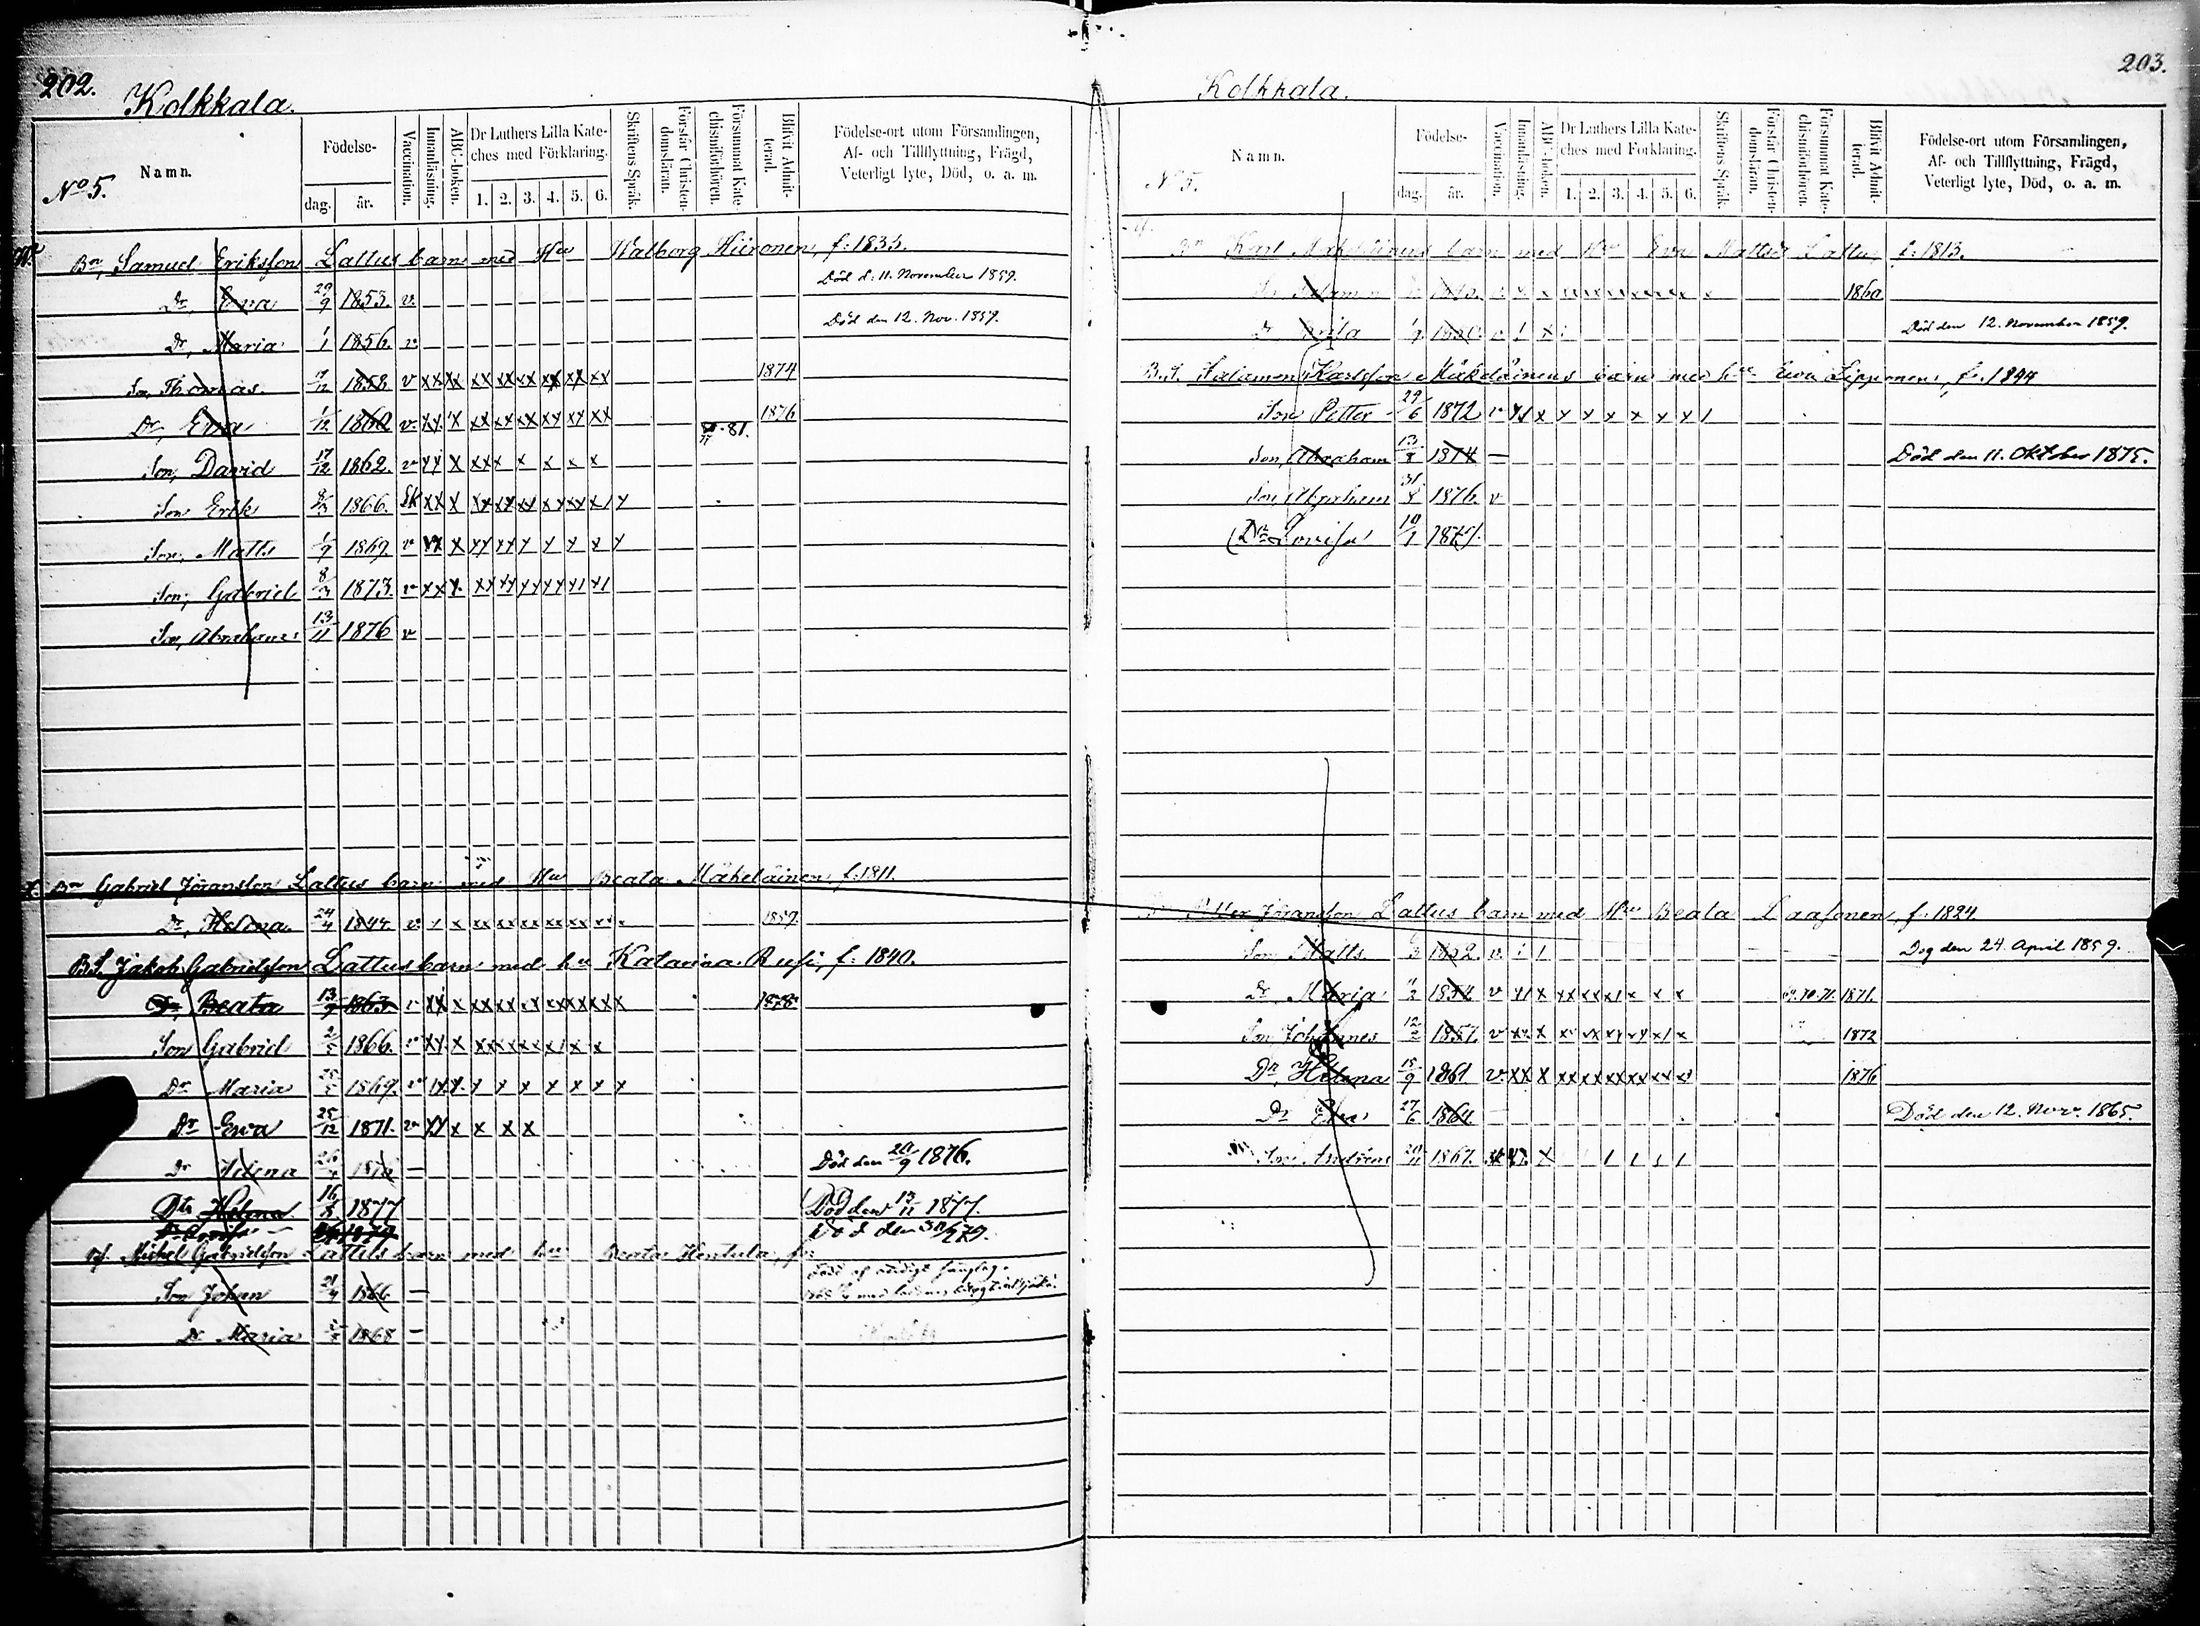 202.
Kolkkala.
No 5.
Namn.
Födelse-
dag. år.
Vaccination.
Innanläsning.
ABC-boken.
Dr Luthers Lilla Kate-
ches med Förklaring.
1. 2. 3. 4. 5. 6.
Skriftens Språk.
Förstår Christen-
domsläran.
Försummat Kate-
chismiförhören.
Blifvit Admit-
terad.
Födelse-ort utom Församlingen,
Af- och Tillflyttning, Frägd,
Veterligt lyte, Död, o. a. m.
Bn, Samuel Eriksson Lattus barn med Hu Walborg Hiironen, f. 1835.
Dr, Ewa 29/9 1853. v. Död d. 11. November 1859.
Dr, Maria 1/1 1856. v Död den 12. Nov. 1859.
Son, Thomas. 1858 v xx xx xx xx xx xx xx xx 1874
Dr, Ewa 1/12 1860 v. xx x xx xx xx xx xx xx 81. 1876
Son, David 17/12 1862. v xx x xxx x x x x
Son Erik 1866. xx x xx xx xx xx
Son, Matts 1/9 1869 v x xx xx x x x x x
Son, Gabriel 8/3 1873. v xx x. xx xx xx xx
Son, Abraham 13/11 1876 v
Bn Gabriel Jöransson Lattus barn med Hu Beata Mäkeläinen f. 1811.
Dr, Helena 24/4 1844. v. x x xx xx xx xx xx 1859.
B.S. Jakob Gabrielsson Lattus barn med hu Katarina Rusi, f. 1840.
Dr, Beata 13/9 1863. xx x xx xx xx 1878
Son Gabriel 2/5 1866. xx. x
Dr Maria 1869. x x x x x x x
Dr Ewa 25/12 1871. v xx x x x x
Dr Helena Död den 20/9 1876.
Dr Helena 16/8 1877 Död den 13/11 1877.
Dr Lovisa 1879 Död den
Mickel Gabrielsson Lattus barn med hu Beata Hentula, f.
Son Johan 21/4 1866
Dr Maria 1868
203.
Kolkkala.
N 5.
Namn.
Födelse-
dag. år.
Vaccination.
Innanläsning.
ABC-boken.
Dr Luthers Lilla Kate-
ches med Förklaring.
1. 2. 3. 4. 5. 6.
Skriftens Språk.
Förstår Christen-
domsläran.
Försummat Kate-
chismiförhören.
Blifvit Admit-
terad.
Födelse-ort utom Församlingen,
Af- och Tillflyttning, Frägd,
Veterligt lyte, Död, o. a. m.
Bn Karl Mäkeläinens barn med Hu Eva Mattsd. Lattu f. 1813.
Salamon 1860
Död den 12. November 1859.
B.S. Salamon Karlsson Mäkeläinens barn med hu Ewa Lipponen, f. 1844
Son Petter 29/6 1872 v x x x x x x x
Son, Abraham 13/8 1874 Död den 11. Oktober 1875.
Son, Abraham 31/8 1876. v
Dr Lovisa 10/1 1879.
Bn Petter Jöransson Lattus barn med Hu Beata Laasonen, f. 1824
Son Matts 1852. v. Dog den 24. April 1859.
Dr, Maria 1854 v 70. 71. 1871.
Son, Johannes 12/2 1857. v 1872
Dr, Helena 15/9 1861 v. xx x xx xx xx xx xx 1876
Dr Eva 27/6 1864. Död den 12. Nov. 1865.
Son Andreas 20/11 1867. x